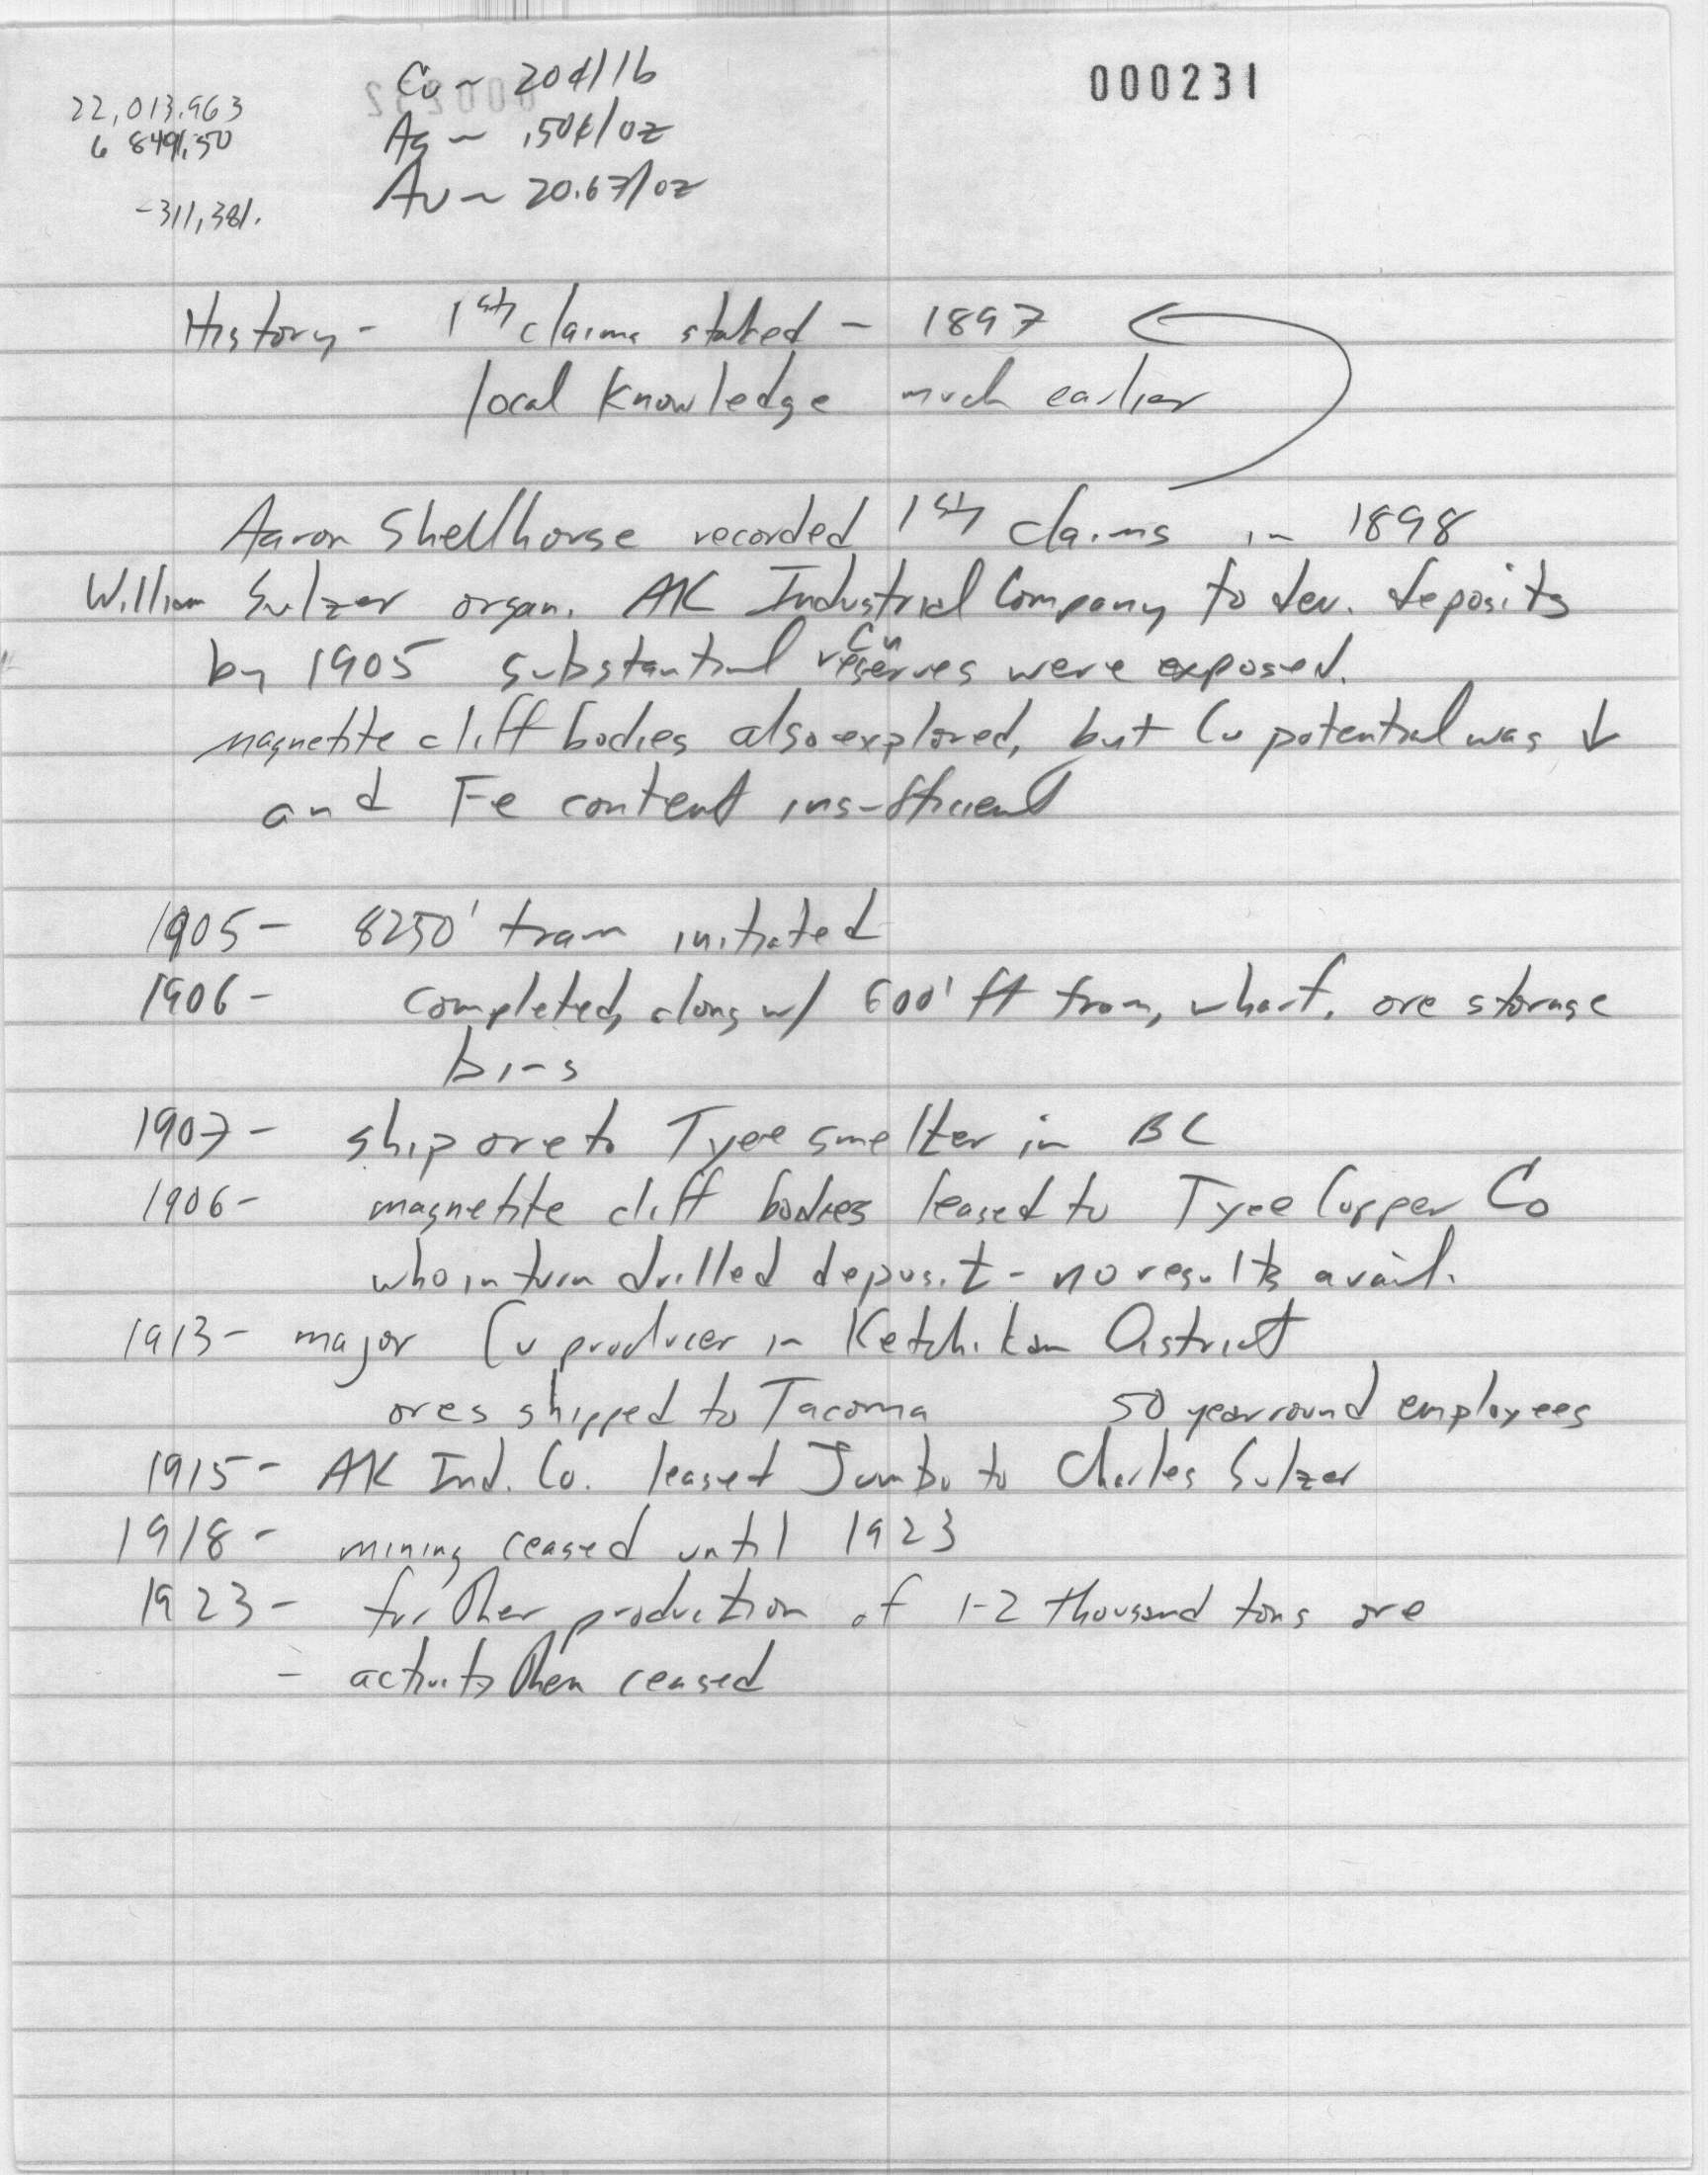 000231
22,013,963
6 8491.50
-311,381.
Cu ~ 20¢/lb
Ag ~ .50¢/oz
Au ~ 20.67/oz
History - 1st claims staked - 1897
local knowledge much earlier
Aaron Shellhouse recorded 1st claims in 1898
William Sulzer organ. AK Industrial Company to dev. deposits
by 1905 substantial Cu reserves were exposed.
magnetite cliff bodies also explored, but Cu potential was ↓
and Fe content insufficient
1905 - 8250' tram initiated
1906 - completed, along w/ 600' ft tram, wharf, ore storage
bins
1907 - ship ore to Tyee smelter in BC
1906 - magnetite cliff bodies leased to Tyee Copper Co
who in turn drilled deposit - no results avail.
1913 - major Cu producer in Ketchikan District
ores shipped to Tacoma 50 year round employees
1915 - AK Ind. Co. leased Jumbo to Charles Sulzer
1918 - mining ceased until 1923
1923 - further production of 1-2 thousand tons ore
- activity then ceased